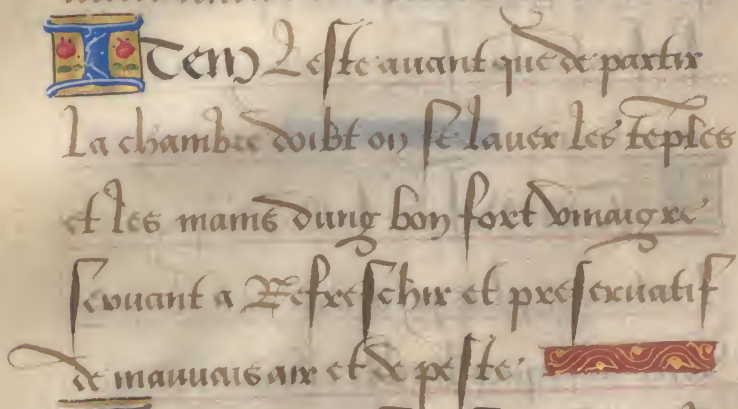 Item Leste auant que de partir
La chambre doibt on se lauer les teples
et les mains dung bon fort vinaigre
seruant a Refreschir et preseruatif
de mauuais air et de peste.